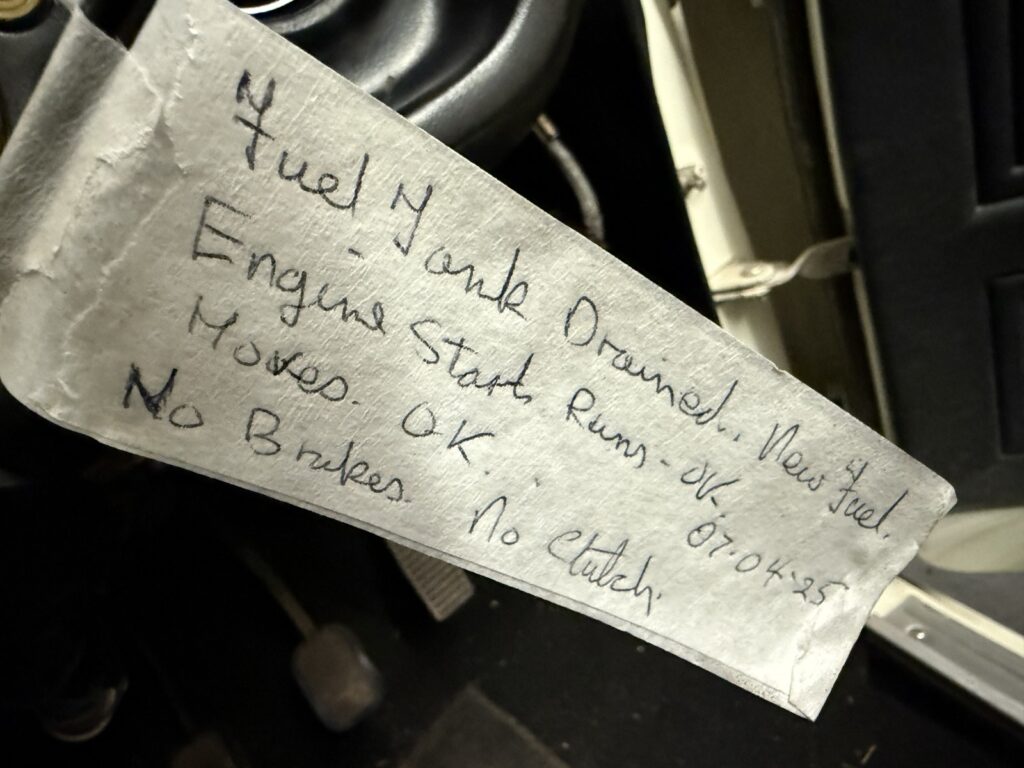 Fuel Tank Drained.. New Fuel.
Engine Starts Runs - OK. 07-04-25
Moves. OK.
No Brakes. No Clutch.